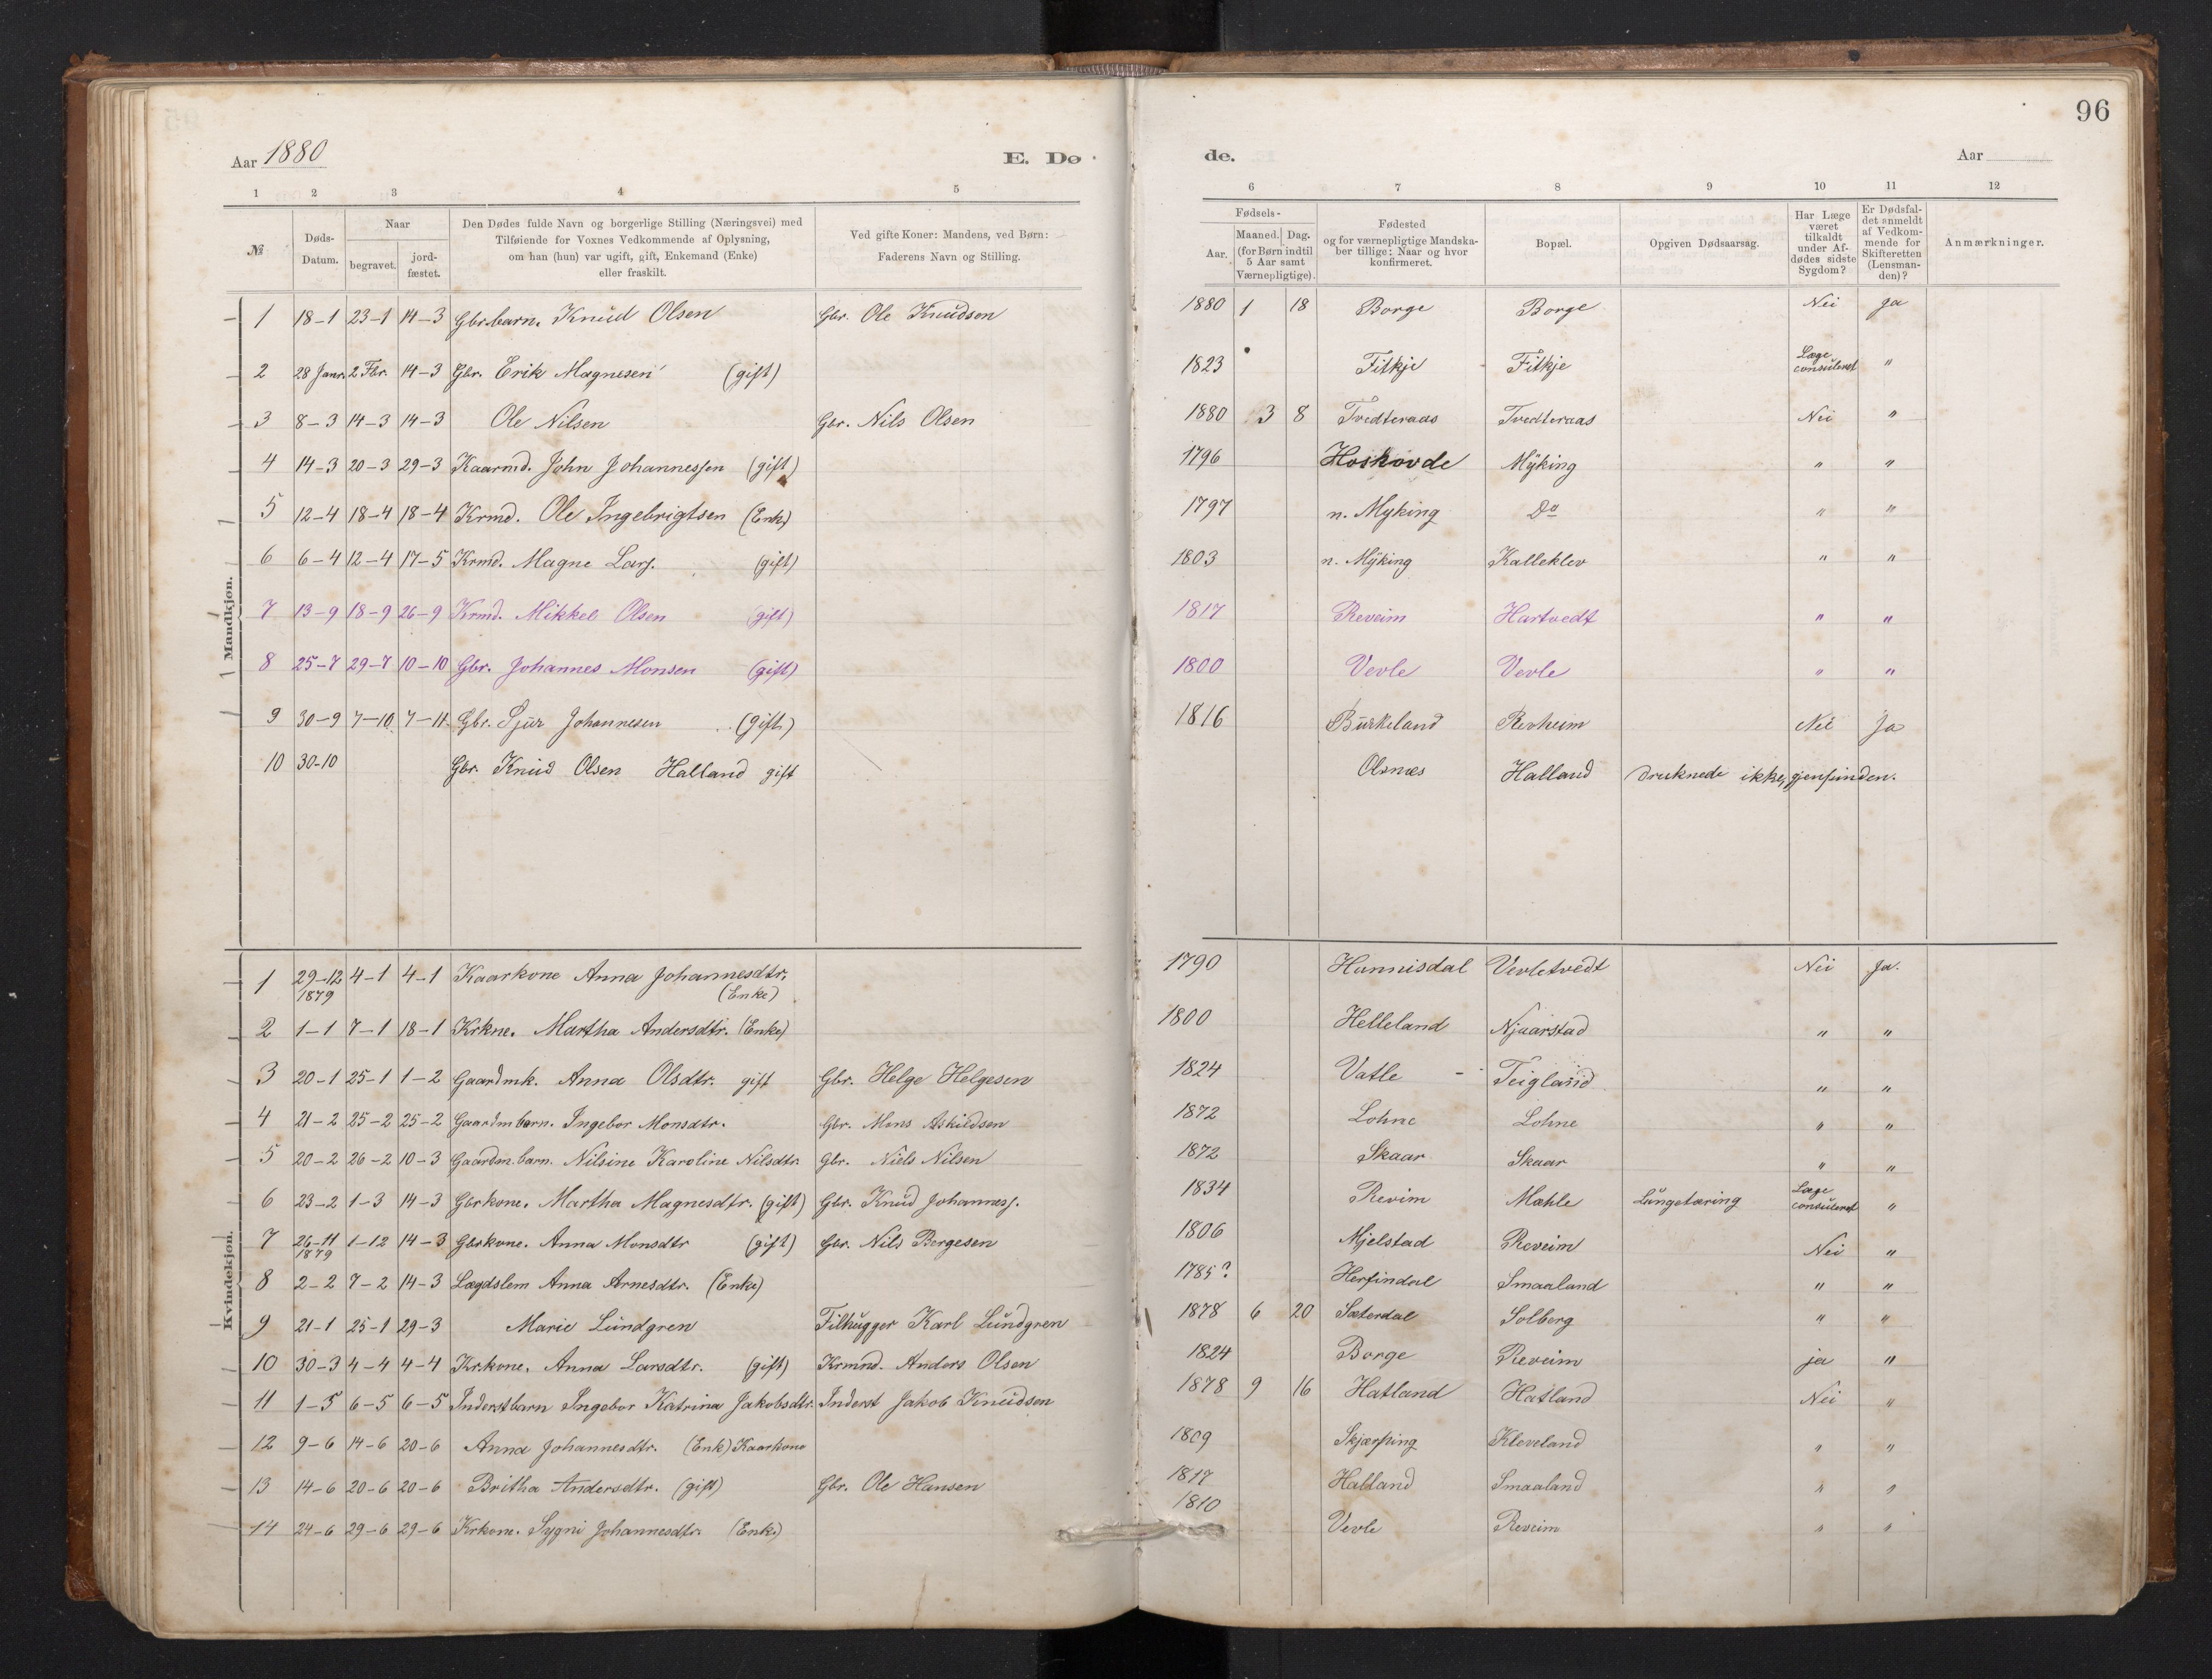 96
Aar 1880 E. Dø de. Aar
1 2 3 4 5 6 7 8 9 10 11 12
№ Døds-Datum. Naar begravet. jord-fæstet. Den Dødes fulde Navn og borgerlige Stilling (Næringsvei) med Tilføiende for Voxnes Vedkommende af Oplysning, om han (hun) var ugift, gift, Enkemand (Enke) eller fraskilt. Ved gifte Koner: Mandens, ved Børn: Faderens Navn og Stilling. Fødsels- Aar. Maaned. Dag. (for Børn indtil 5 Aar samt Værnepligtige). Fødested og for værnepligtige Mandskaber tillige: Naar og hvor konfirmeret. Bopæl. Opgiven Dødsaarsag. Har Læge været tilkaldt under Afdødes sidste Sygdom? Er Dødsfaldet anmeldt af Vedkommende for Skifteretten (Lensmanden)? Anmærkninger.
Mandkjøn.
1 18-1 23-1 14-3 Gbr.barn. Knud Olsen Gbr. Ole Knudsen 1880 1 18 Borge Borge Nei Ja
2 28 Janr. 2 Fbr. 14-3 Gbr. Erik Magnesen (gift) 1823 Fitkje Fitkje Læge consuleret "
3 8-3 14-3 14-3 Ole Nilsen Gbr. Nils Olsen 1880 3 8 Tvedteraas Tvedteraas Nei "
4 14-3 20-3 29-3 Kaarmd. John Johannessen (gift) 1796 Hoskovde Myking " "
5 12-4 18-4 18-4 Krmd. Ole Ingebrigtsen (Enk) 1797 n. Myking Do " "
6 6-4 12-4 17-5 Krmd. Magne Lars. (gift) 1803 n. Myking Kalleklev " "
7 13-9 18-9 26-9 Krmd. Mikkel Olsen (gift) 1817 Reveim Hartvedt " "
8 25-7 29-7 10-10 Gbr. Johannes Monsen (gift) 1800 Vevle Vevle " "
9 30-9 7-10 7-11 Gbr. Sjur Johannesen (gift) 1816 Burkeland Revheim Nei Ja
10 30-10 Gbr. Knud Olsen Halland gift Olsnæs Halland druknede ikke gjenfunden.
Kvindekjøn.
1 29-12 1879 4-1 4-1 Kaarkone Anna Johannesdtr. (Enke) 1790 Hannisdal Vevletvedt Nei Ja.
2 1-1 7-1 18-1 Krkne. Martha Andersdtr. (Enke) 1800 Helleland Njaarstad " "
3 20-1 25-1 1-2 Gaardmk. Anna Olsdtr. gift Gbr. Helge Helgesen 1824 Vatle - Teigland " "
4 21-2 25-2 25-2 Gaardmbarn. Ingebor Monsdtr. Gbr. Mons Askildsen 1872 Lohne Lohne " "
5 20-2 26-2 10-3 Gaardm.barn. Nilsine Karoline Nilsdtr Gbr. Niels Nilsen 1872 Skaar Skaar " "
6 23-2 1-3 14-3 Gbrkone. Martha Magnesdtr. (gift) Gbr. Knud Johanness. 1834 Revim Mæhle Lungetæring Læge consuleret "
7 26-11 1879 1-12 14-3 Gbrkone. Anna Monsdtr (gift) Gbr. Nils Børgesen 1806 Mjelstad Reveim Nei "
8 2-2 7-2 14-3 Lægdslem Anna Arnesdtr. (Enke) 1785? Herfindal Smaaland " "
9 21-1 25-1 29-3 Marie Lundgren Filhugger Karl Lundgren 1878 6 20 Sæterdal Solberg " "
10 30-3 4-4 4-4 Krkone. Anna Larsdtr. (gift) Krmnd. Anders Olsen 1824 Borge Reveim ja "
11 1-5 6-5 6-5 Inderstbarn Ingebor Katrina Jakobsdtr. Inderst Jakob Knudsen 1878 9 16 Hatland Hatland Nei "
12 9-6 14-6 20-6 Anna Johannesdtr. (Enk) Kaarkone 1809 Skjærping Kleveland " "
13 14-6 20-6 20-6 Britha Andersdtr. (gift) Gbr. Ole Hansen 1817 Halland Smaaland " "
14 24-6 29-6 29-6 Krkone. Sygni Johannesdtr (Enke) 1810 Vevle Reveim " "